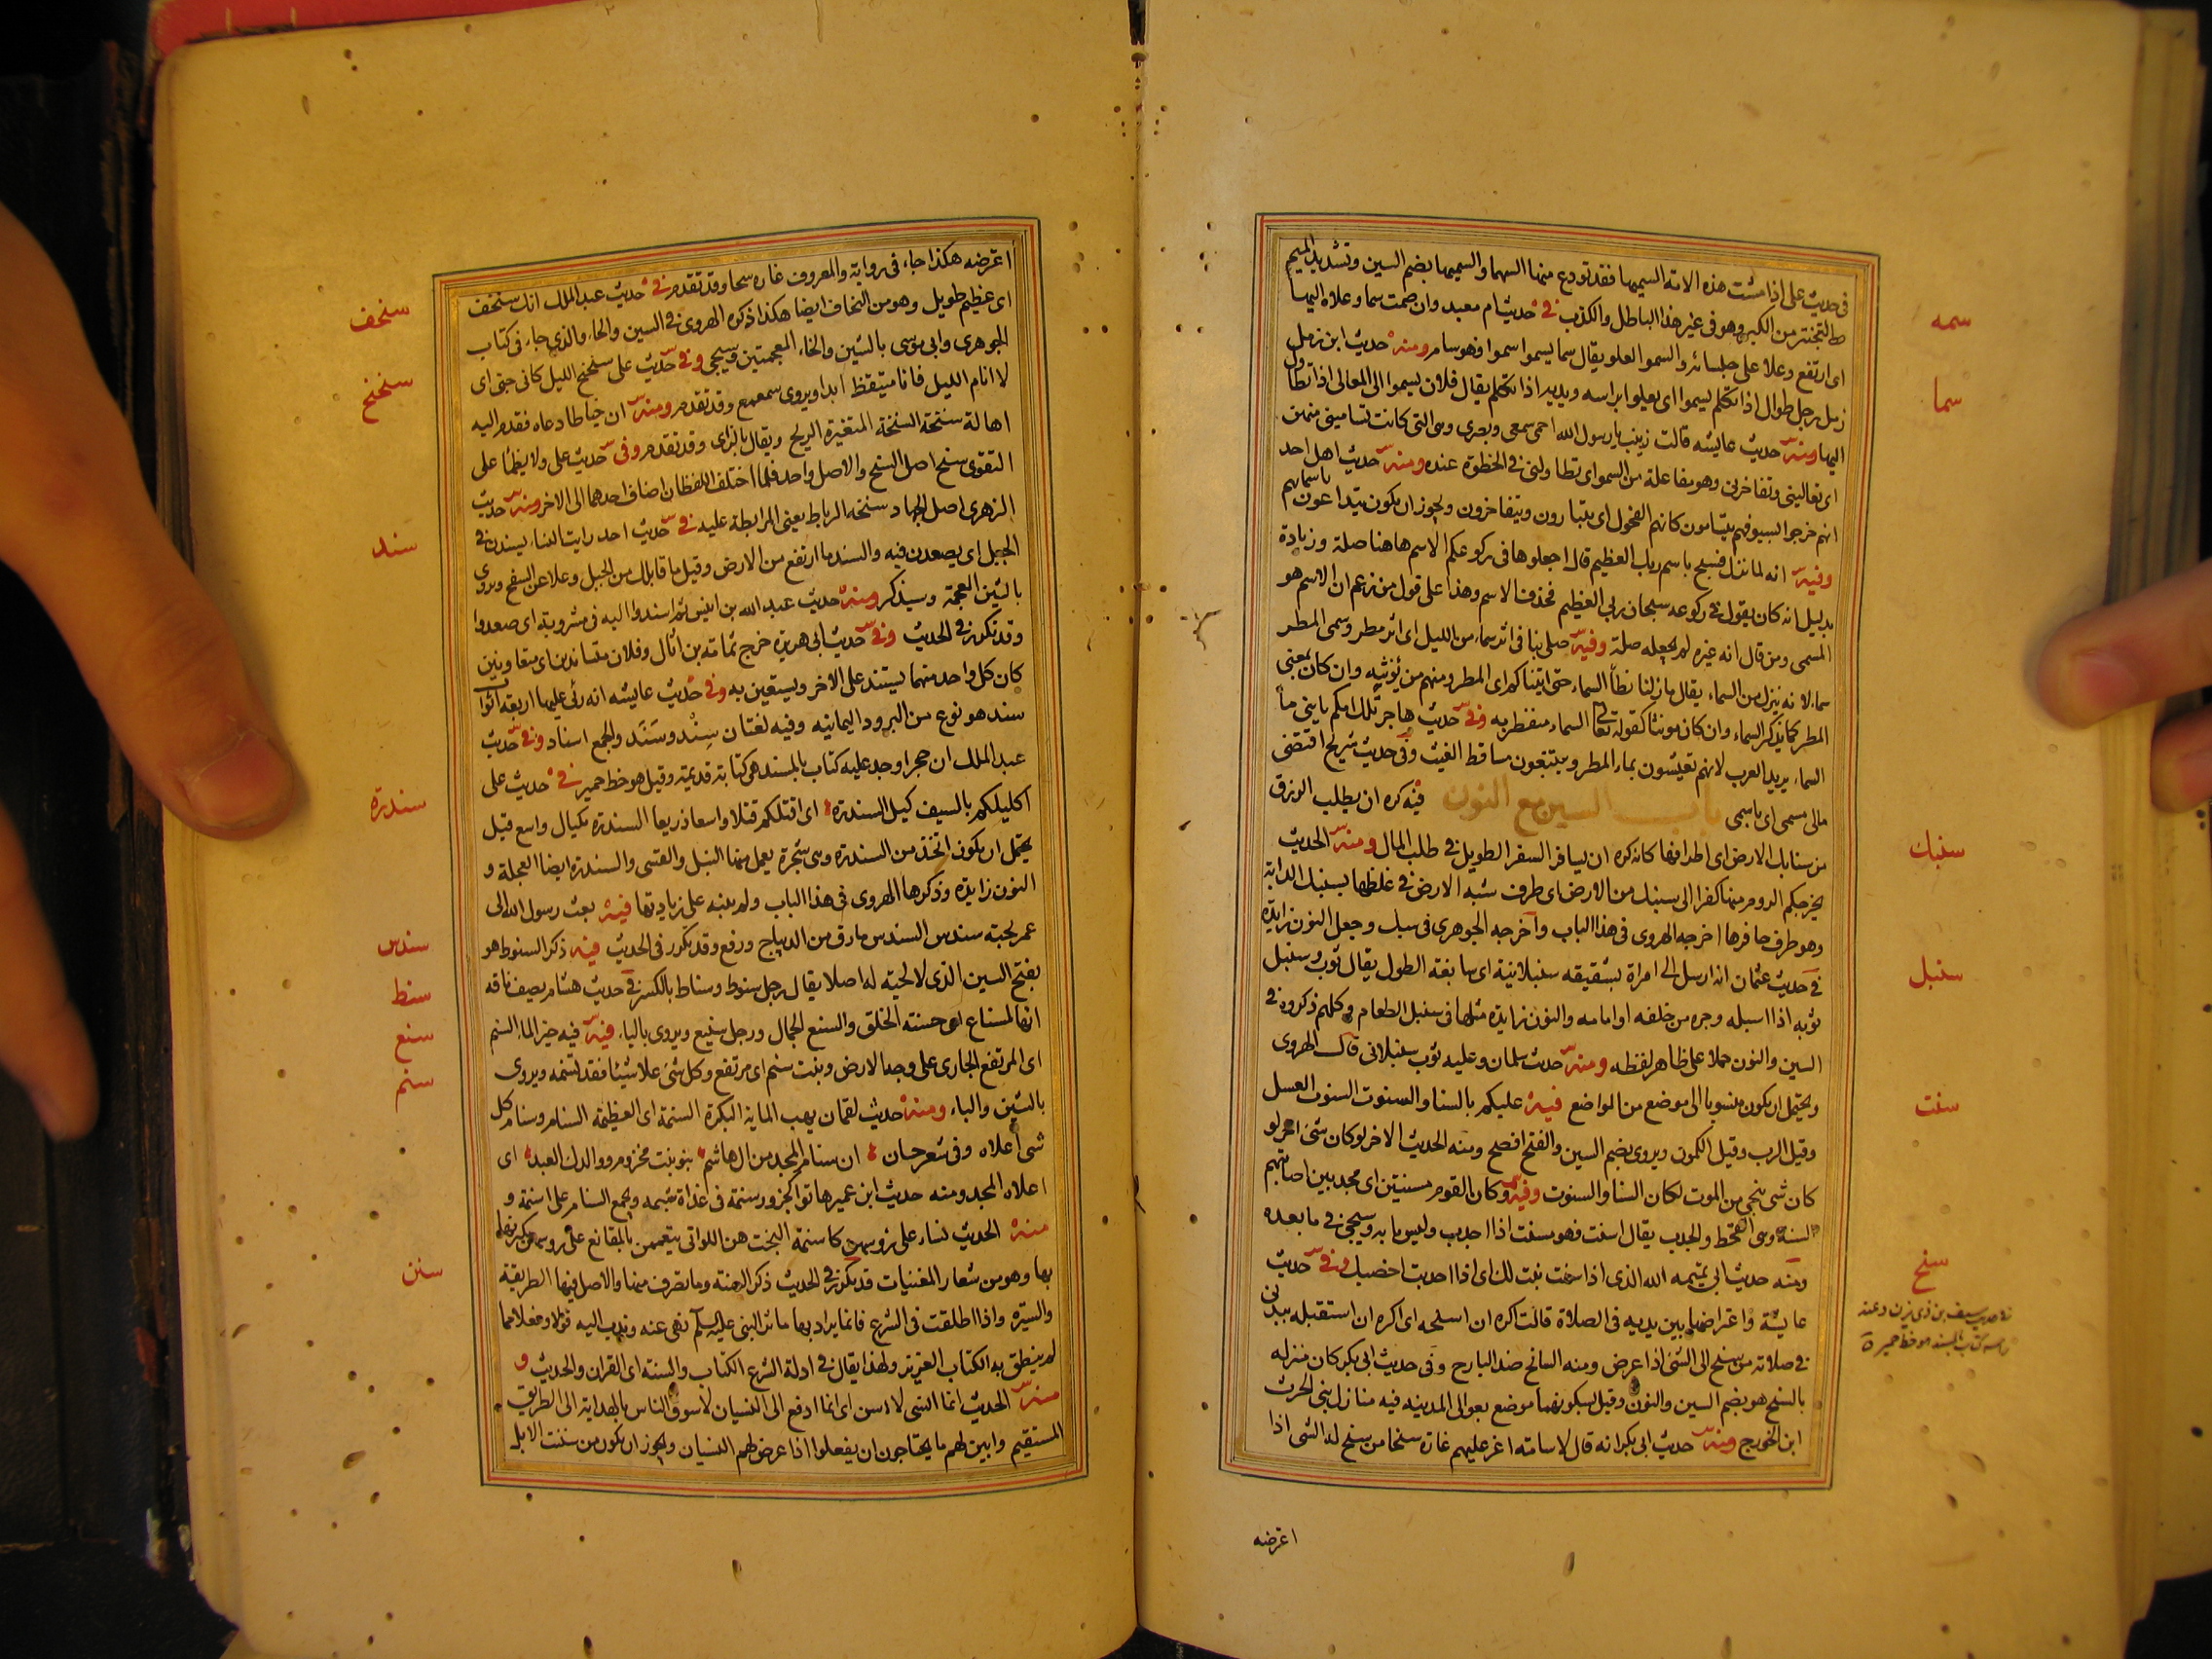 فى حديث على اذا مشت هذه الامة السميهى فقد تودع منها السمها والسميهى بضم السين وتشديد الميم
سمه
التبختر من الكبر وهو فى غير هذا الباطل والكذب فى حديث ام معبد وان صمت سما وعلاه البها
اى ارتفع وعلا على جلسائه والسمو العلو يقال سما يسموا سموا فهو سام ومنه حديث ابن زمل
سما
رجل طوال اذا تكلم يسموا اى يعلوا براسه ويديه اذا تكلم يقال فلان يسموا الى المعالى اذا تطاول
اليها ومنه حديث عايشه قالت زينب يا رسول الله احمى سمعى وبصرى وهى التى كانت تسامينى منهن
اى تعالينى وتفاخرنى وهو مفاعلة من السمو اى تطاولنى فى الحظوة عنده ومنه حديث اهل احد
انهم خرجوا بسيوفهم يتسامون كانهم الفحول اى يتبارون ويتفاخرون ويجوز ان يكون يتداعون باسمائهم
وفيه انه لما نزل فسبح باسم ربك العظيم قال اجعلوها فى ركوعكم الاسم هاهنا صلة وزيادة
بدليل انه كان يقول فى ركوعه سبحان ربى العظيم فحذف الاسم وهذا على قول من زعم ان الاسم هو
المسمى ومن قال انه غيره لم يجعله صلة وفيه صلى بنا فى اثر سماء من الليل اى اثر مطر وسمى المطر
سماء لانه ينزل من السماء يقال ما زلنا نطأ السماء حتى اتيناكم اى المطر ومنهم من يؤنثه وان كان بمعنى
المطر كما يذكر السماء وان كان مونثا كقوله تعا السماء منفطر به وفى حديث هاجر تلك امكم يا بنى ما
السماء يريد العرب لانهم يعيشون بماء المطر ويتتبعون مساقط الغيث وفى حديث شريح اقتضى
مالى مسمى اى باسمى باب السين مع النون فيه كره ان يطلب الرزق
سنبك
من سنابك الارض اى اطرافها كانه كره ان يسافر السفر الطويل فى طلب المال ومنه الحديث
يخرجكم الروم منها كفرا الى سنبك من الارض اى طرف شبه الارض فى غلظها بسنبك الدابة
وهو طرف حافرها اخرجه الهروى فى هذا الباب واخرجه الجوهرى فى سبك وجعل النون زايدة
سنبل
فى حديث عثمان انه ارسل الى امراة بشقيقه سنبلانية اى سابغة الطول يقال ثوب وسنبل
ثوبه اذا اسبله وجره من خلفه او امامه والنون زايدة مثلها فى سنبل الطعام وكلهم ذكروه فى
السين والنون حملا على ظاهر لفظه ومنه حديث سلمان وعليه ثوب سنبلانى قال الهروى
سنت
ويحتمل ان يكون منسوبا الى موضع من المواضع فيه عليكم بالسنا والسنوت السنوت العسل
وقيل الرب وقيل الكمون ويروى بضم السين والفتح افصح ومنه الحديث الاخر لو كان شئ
كان شى ينجى من الموت لكان السنا والسنوت وفيه وكان القوم مسنتين اى مجدبين اصابتهم
السنة وهى القحط والجدب يقال اسنت فهو مسنت اذا اجدب وليس بابه وسيجئ فى ما بعده
ومنه حديث ابى تميمه الله الذى اذا اسنت نبت لك اى اذا اجدبت اخصبك وفى حديث
سنح
عايشة واعتراضها بين يديه فى الصلاة قالت اكره ان اسنحه اى اكره ان استقبله ببدنى
فى صلاته من سنح لى الشئ اذا عرض ومنه السانح ضد البارح وفى حديث ابى بكر كان منزله
بالسنح هو بضم السين والنون وقيل بسكونها موضع بعوالى المدينه فيه منازل بنى الحرث
ابن الخزرج ومنه حديث ابى بكر انه قال لاسامه اغر عليهم غارة سنحا من سنح له الشى اذا
اعترضه
اعترضه هكذا جاء فى رواية والمعروف غارة سحا وقد تقدم فى حديث عبد الملك انك سنحف
سنحف
اى عظيم طويل وهو من النحاف ايضا هكذا ذكره الهروى فى السين والحاء والذى جاء فى كتاب
الجوهرى وابى موسى بالشين والخاء المعجمتين وسيجى وفى حديث على سنحنح الليل كانى جنى اى
سنحنح
لا انام الليل فانا متيقظ ابدا ويروى سمعمع وقد تقدم ومنه ان خياطا دعاه فقدم اليه
اهالة سنخة السنخة المتغيرة الريح ويقال بالزاى وقد تقدم وفى حديث على ولا يظمأ على
التقوى سنخ اصل السنخ والاصل واحد فلما اختلف اللفظان اضاف احدهما الى الاخر ومنه حديث
الزهرى اصل الجهاد وسنخه الرباط يعنى المرابطة عليه فى حديث احد رايت النساء يسندن فى
سند
الجبل اى يصعدن فيه والسند ما ارتفع من الارض وقيل ما قابلك من الجبل وعلا عن السفح ويروى
بالشين المعجمة وسيذكر ومنه حديث عبد الله بن انيس ثم اسندوا اليه فى مشربة اى صعدوا
وقد تكرر فى الحديث وفى حديث ابى هريرة خرج ثمامة بن اثال وفلان متساندين اى متعاونين
كان كل واحد منهما يستند على الاخر ويستعين به وفى حديث عايشه انه رئى عليها اربعة اثواب
سند هو نوع من البرود اليمانيه وفيه لغتان سِنْد وسَنَد والجمع اسناد وفى حديث
عبد الملك ان حجرا وجد عليه كتاب بالمسند هى كتابة قديمة وقيل هو خط حمير فى حديث على
سندرة
اكليلكم بالسيف كيل السندرة اى اقتلكم قتلا واسعا ذريعا السندرة مكيال واسع قيل
يحتمل ان يكون اتخذ من السندرة وهى شجرة يعمل منها النبل والقسى والسندرة ايضا العجلة و
النون زايدة وذكرها الهروى فى هذا الباب ولم ينبه على زيادتها فيه بعث رسول الله الى
سندس
عمر بجبة سندس السندس مارق من الديباج ورفع وقد تكرر فى الحديث فيه ذكر السنوط هو
سنط
بفتح السين الذى لا لحية له اصلا يقال رجل سنوط وسناط بالكسر فى حديث هشام يصف ناقه
سنع
انها لمسناع اى حسنة الخلق والسنع الجمال ورجل سنيع ويروى بالياء فيه خير الماء السنم
سنم
اى المرتفع الجارى على وجه الارض ونبت سنم اى مرتفع وكل شئ علا شيئا فقد تسنمه ويروى
بالشين والباء ومنه حديث لقمان يهب الماية البكرة السنمة اى العظيمة السنام وسنام كل
شى اعلاه وفى شعر حسان ان سنام المجد من ال هاشم بنو بنت مخزوم ووالدك العبد اى
اعلاه المجد ومنه حديث ابن عمير هاتوا الجزور سنمة فى غداة شبمه ويجمع السنام على اسنمة و
منه الحديث نساء على رؤسهن كاسنمة البخت هن اللواتى يتعممن بالمقانع على رؤسهن يكبرنها
بها وهو من شعار المغنيات قد تكرر فى الحديث ذكر السنة وما تصرف منها والاصل فيها الطريقة
سنن
والسيرة واذا اطلقت فى الشرع فانما يراد بها ما امر النبى عليه السلم نهى عنه وندب اليه قولا وفعلا مما
لم ينطق به الكتاب العزيز ولهذا يقال فى ادلة الشرع الكتاب والسنة اى القران والحديث و
منه الحديث انما انسى لا اسن اى انما ادفع الى النسيان لاسوق الناس بالهداية الى الطريق
المستقيم وابين لهم ما يحتاجون ان يفعلوا اذا عرض لهم النسيان ويجوز ان يكون من سننت الابل